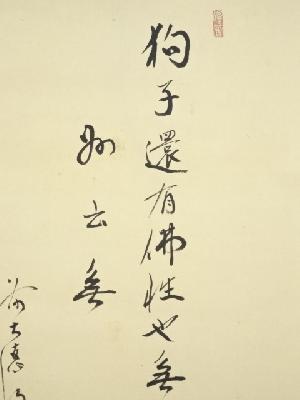 狗子還有佛性也無
州云無